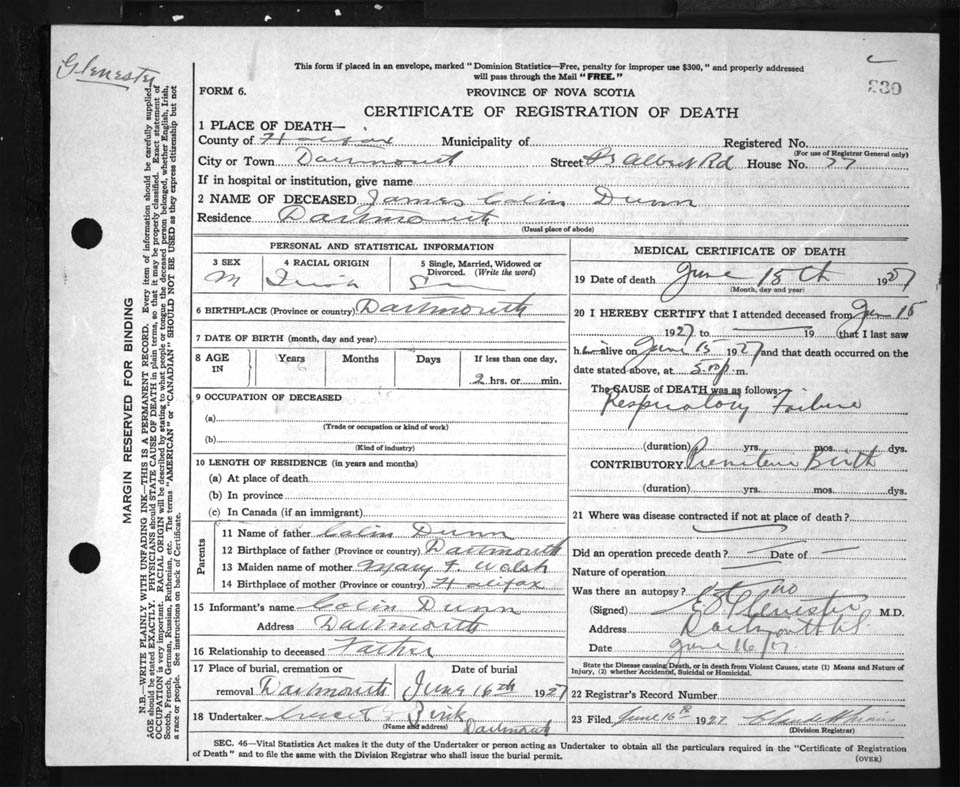 Glenester
This form if placed in an envelope, marked "Dominion Statistics—Free, penalty for improper use $300," and properly addressed
will pass through the Mail "FREE."
FORM 6.
PROVINCE OF NOVA SCOTIA
230
CERTIFICATE OF REGISTRATION OF DEATH
1 PLACE OF DEATH—
County of Halifax Municipality of Registered No.
(For use of Registrar General only)
City or Town Dartmouth Street Pr Albert Rd House No. 77
If in hospital or institution, give name
2 NAME OF DECEASED James Colin Dunn
Residence Dartmouth
(Usual place of abode)
PERSONAL AND STATISTICAL INFORMATION
3 SEX 4 RACIAL ORIGIN 5 Single, Married, Widowed or
Divorced. (Write the word)
M Irish Sin
6 BIRTHPLACE (Province or country) Dartmouth
7 DATE OF BIRTH (month, day and year)
8 AGE IN Years Months Days If less than one day,
2 hrs. or min.
9 OCCUPATION OF DECEASED
(a)
(Trade or occupation or kind of work)
(b)
(Kind of industry)
10 LENGTH OF RESIDENCE (in years and months)
(a) At place of death
(b) In province
(c) In Canada (if an immigrant)
Parents
11 Name of father Colin Dunn
12 Birthplace of father (Province or country) Dartmouth
13 Maiden name of mother Mary F. Walsh
14 Birthplace of mother (Province or country) Halifax
15 Informant's name Colin Dunn
Address Dartmouth
16 Relationship to deceased Father
17 Place of burial, cremation or Date of burial
removal Dartmouth June 16th 1927
18 Undertaker
(Name and address) Dartmouth
MEDICAL CERTIFICATE OF DEATH
19 Date of death June 15th 1927
(Month, day and year)
20 I HEREBY CERTIFY that I attended deceased from June 15
1927 to 19 (that I last saw
h im alive on June 15 1927 and that death occurred on the
date stated above, at m.
The CAUSE of DEATH was as follows:
Respiratory Failure
(duration) yrs. mos. dys.
CONTRIBUTORY Premature Birth
(duration) yrs. mos. dys.
21 Where was disease contracted if not at place of death?
Did an operation precede death? Date of
Nature of operation
Was there an autopsy? no
(Signed) Glenister M.D.
Address Dartmouth N.S.
Date June 16/27
State the Disease causing Death, or in death from Violent Causes, state (1) Means and Nature of
Injury, (2) whether Accidental, Suicidal or Homicidal.
22 Registrar's Record Number
23 Filed June 16th 1927
(Division Registrar)
SEC. 46—Vital Statistics Act makes it the duty of the Undertaker or person acting as Undertaker to obtain all the particulars required in the "Certificate of Registration
of Death" and to file the same with the Division Registrar who shall issue the burial permit.
(OVER)
MARGIN RESERVED FOR BINDING
N.B.—WRITE PLAINLY WITH UNFADING INK—THIS IS A PERMANENT RECORD. Every item of information should be carefully supplied.
AGE should be stated EXACTLY. PHYSICIANS should STATE CAUSE OF DEATH in plain terms, so that it may be properly classified. Exact statement of
OCCUPATION is very important. RACIAL ORIGIN will be described by stating to what people or tongue the deceased person belonged, whether English, Irish,
Scotch, French, German, Russian, Ruthenian, etc. The terms "AMERICAN" or "CANADIAN" SHOULD NOT BE USED as they express citizenship but not
a race or people. See instructions on back of Certificate.